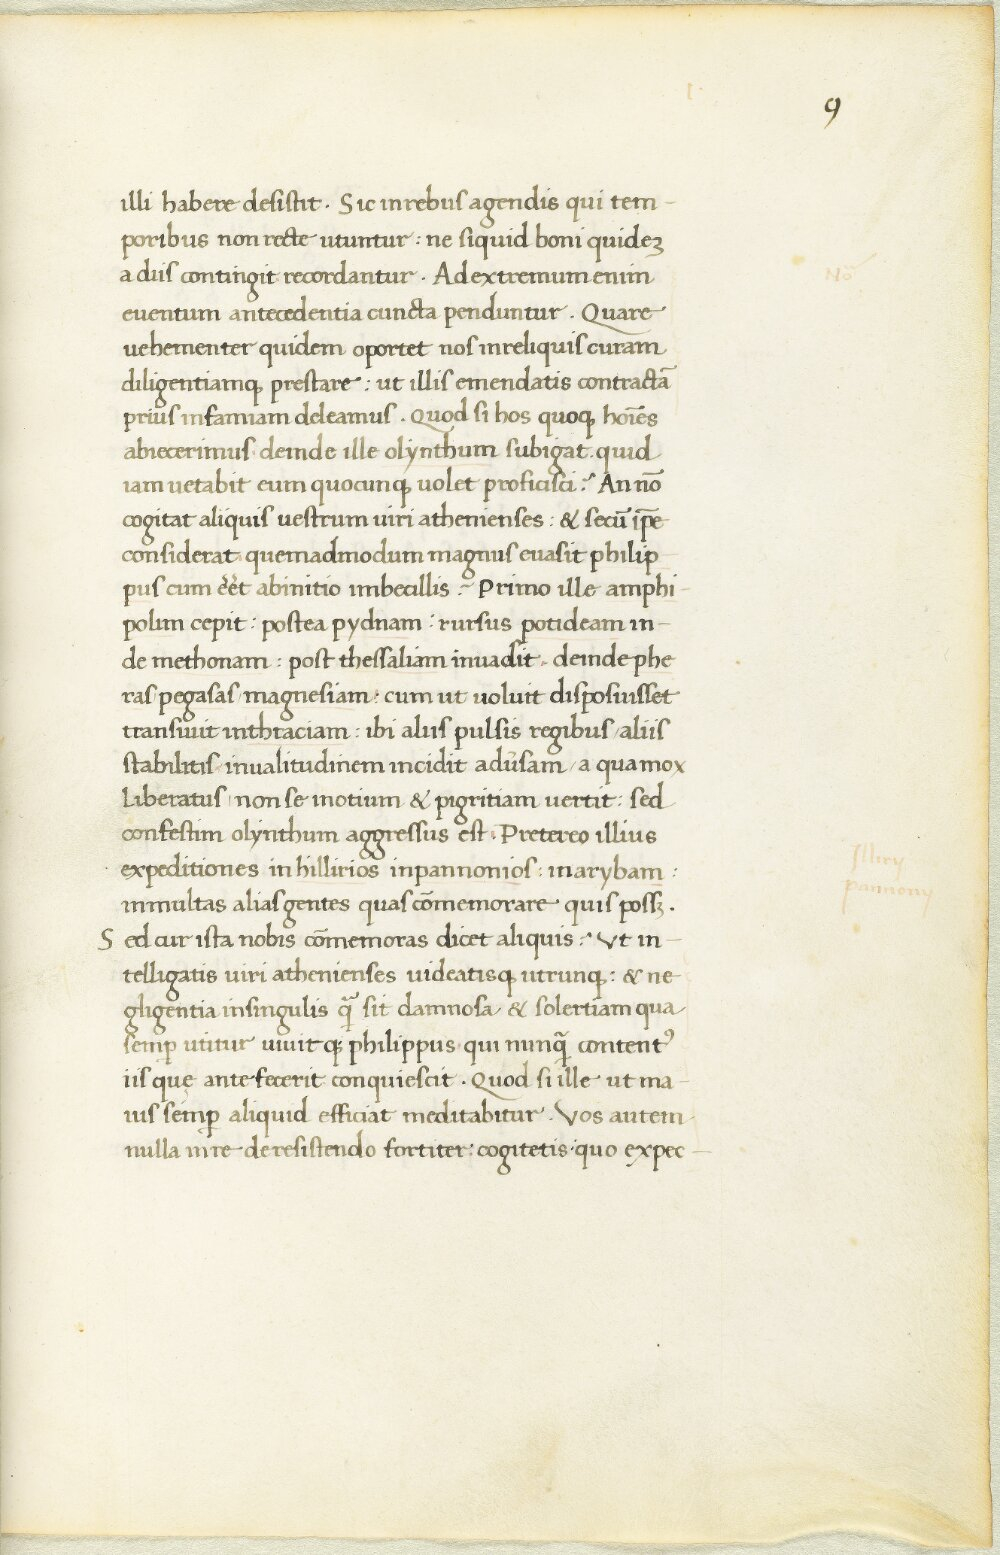 9
illi habere desistit. Sic in rebus agendis qui tem-
poribus non recte utuntur: ne siquid boni quideȝ
a diis contingit recordantur. Ad extremum enim
euentum antecedentia cuncta penduntur. Quare
uehementer quidem oportet nos in reliquis curam
diligentiamqꝫ prestare: ut illis emendatis contractā
prius infamiam deleamus. Quod si hos quoqꝫ hoīes
abiecerimus deinde ille olynthum subigat. quid
iam uetabit eum quocunqꝫ uolet proficisci? An nō
cogitat aliquis uestrum uiri athenienses: & secū ip̄e
considerat quemadmodum magnus euasit philip
pus cum eēt ab initio imbecillis? Primo ille amphi-
polim cepit: postea pydnam: rursus potideam in-
de methonam: post thessaliam inuadit. deinde phe
ras/pegasas/magnesiam: cum ut uoluit disposuisset
transiuit in thraciam: ibi aliis pulsis regibus/aliis
stabilitis/in ualitudinem incidit aduersam/a qua mox
Liberatus/non se in otium & pigritiam uertit: sed
confestim olynthum aggressus est. Pretereo illius
expeditiones in hillirios in pannonios: in arybam:
in multas alias gentes quas cōmemorare quis possꝫ.
Sed cur ista nobis cōmemoras dicet aliquis? Vt in-
telligatis uiri athenienses uideatisqꝫ utrunqꝫ: & ne
gligentia in singulis qᷓ sit damnosa/& solertiam qua
semꝑ utitur uiuitqꝫ philippus qui nunqᷓ contentꝰ
iis quę ante fecerit conquiescit. Quod si ille ut ma-
ius semꝑ aliquid efficiat meditabitur. Vos autem
nulla in re de resistendo fortiter: cogitetis quo expec-
Illiry
pannony